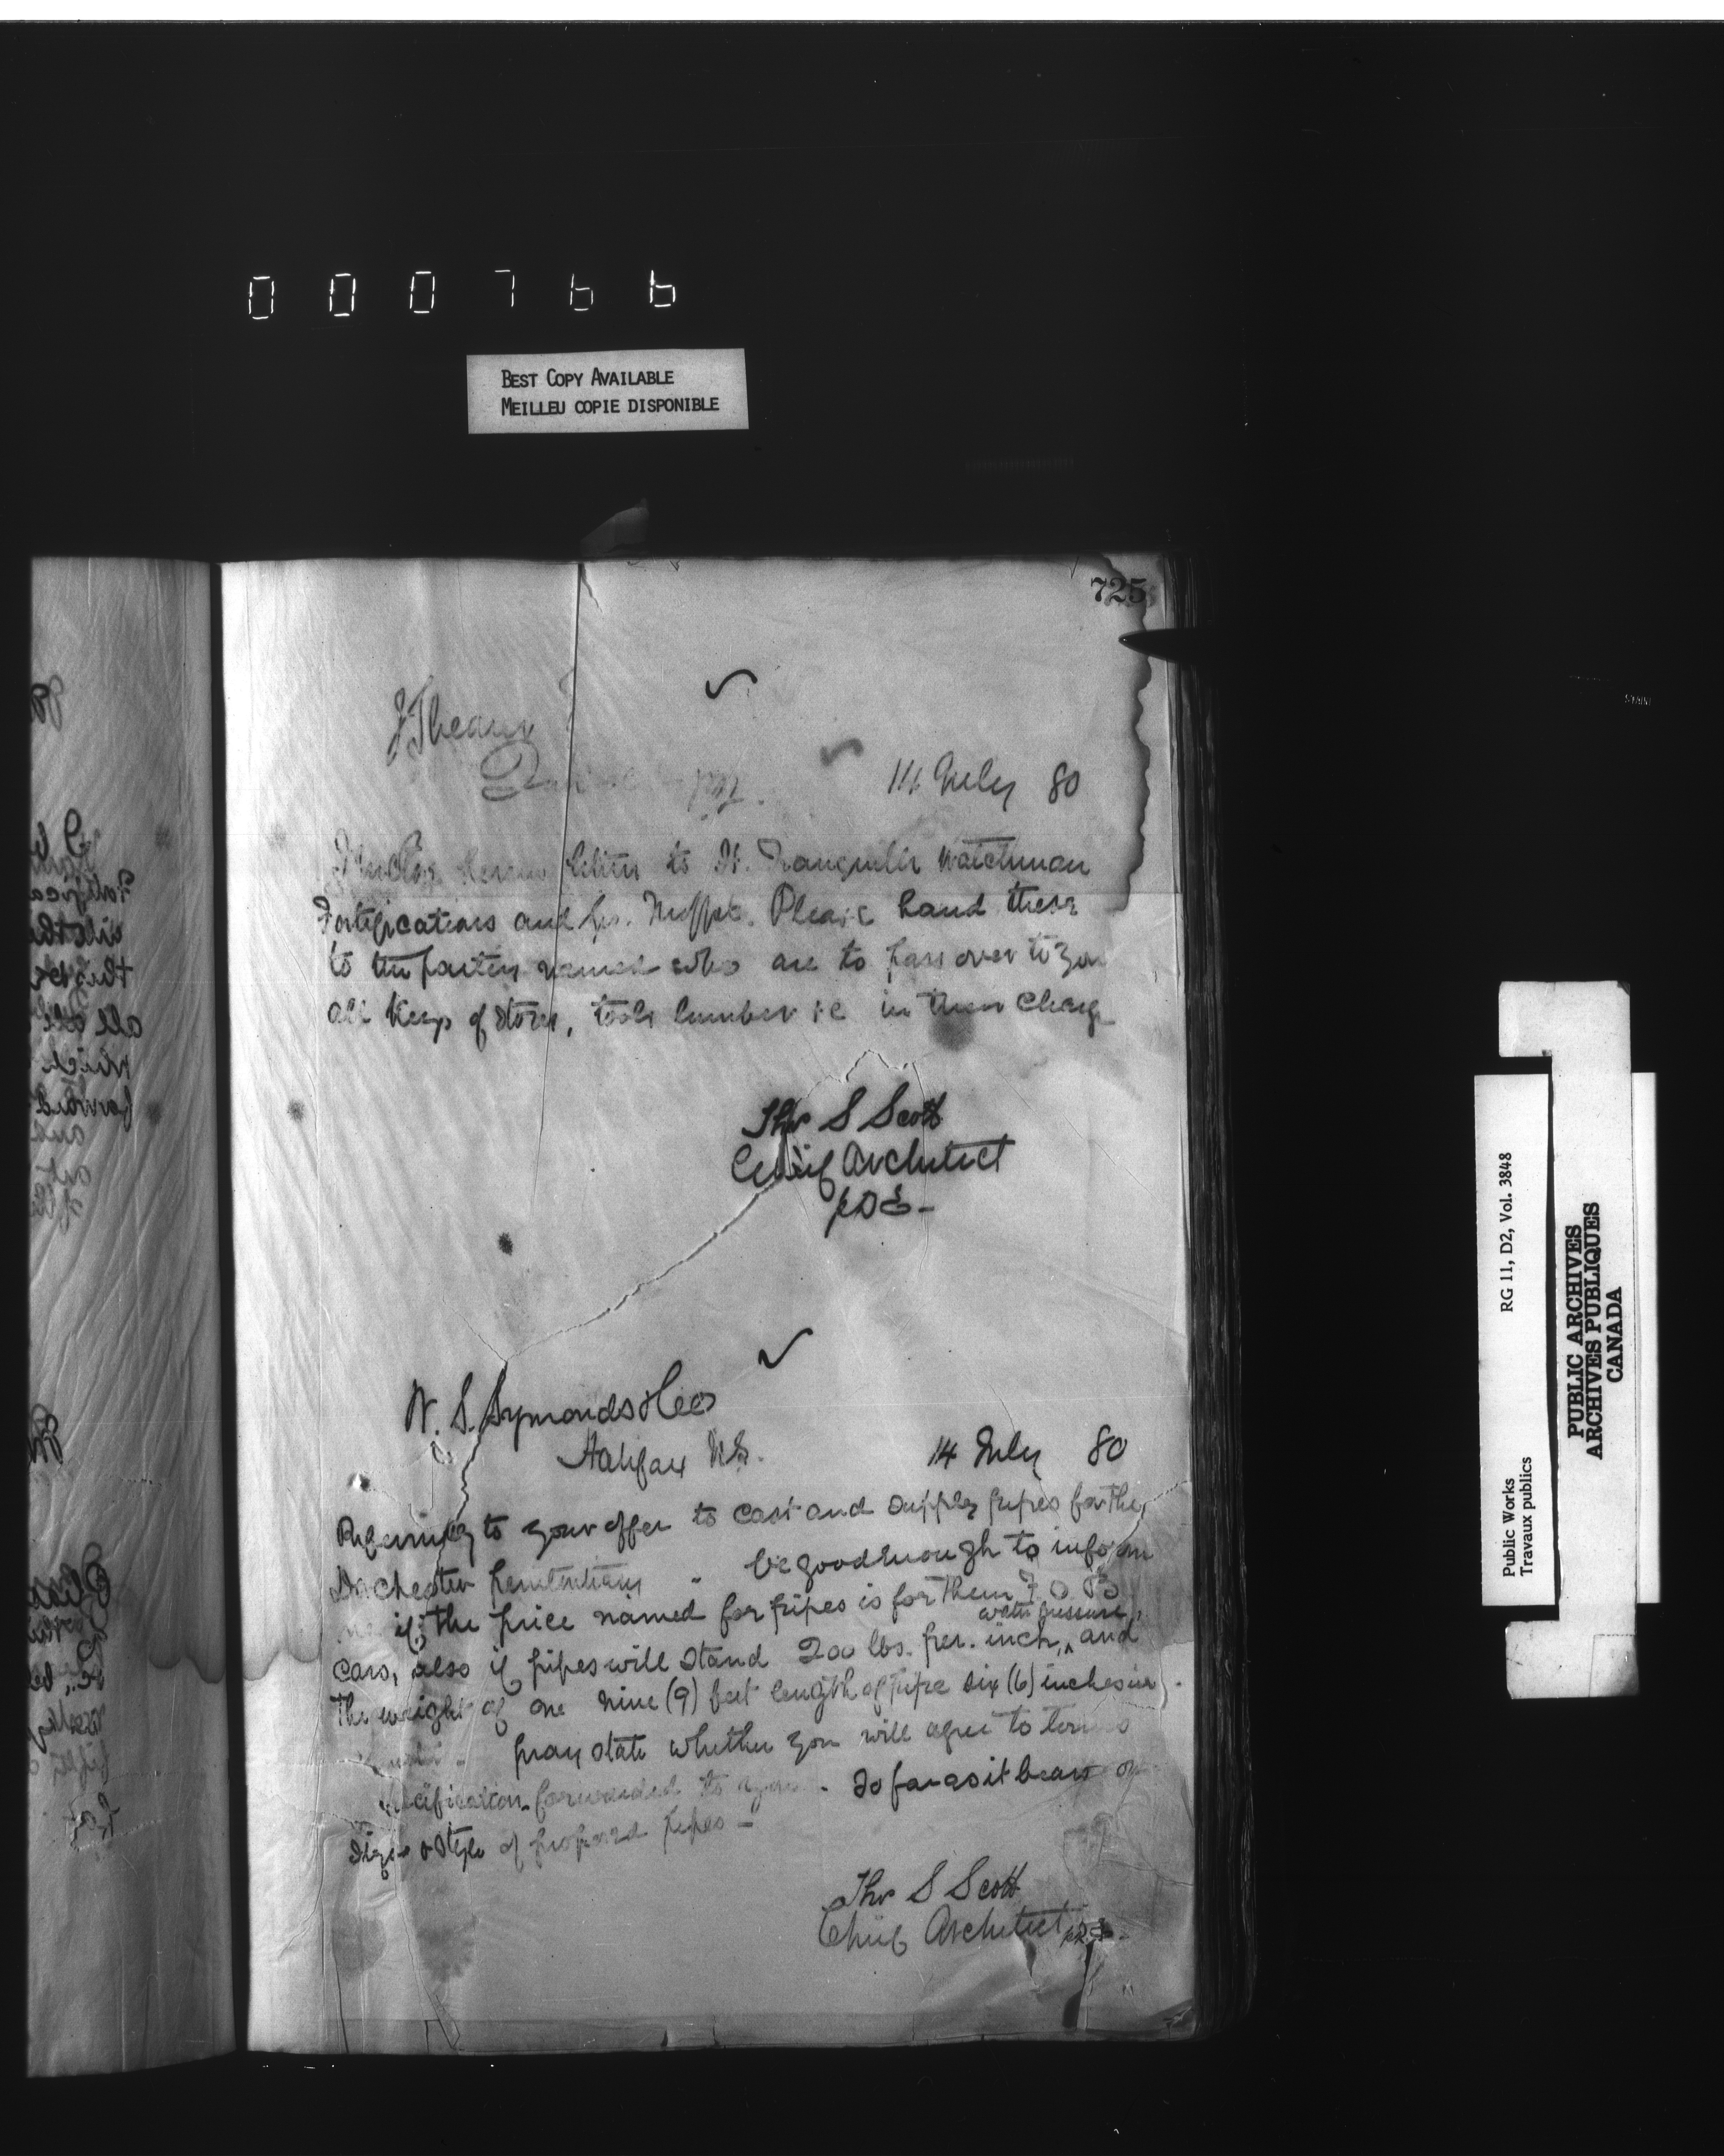 000766
BEST COPY AVAILABLE
MEILLEU COPIE DISPONIBLE
725
14 July 80
letter to watchman
Fortifications and Please hand these
to the parties named who are to pass over to you
all Keys of Stores, tools lumber &c in their charge
Thos S Scott
Chief Architect
W. S. Symonds & Co
Halifax N.S.
14 July 80
Referring to your offer to cast and supply pipes for the
Dorchester Penitentiary - be good enough to inform
if the price named for pipes is for them F.O.B
water pressure,
cars, also if pipes will stand 200 lbs. per. inch, ^ and
the weight of one nine (9) feet length of pipe six (6) inches in
pray state whether you will agree to terms
specification forwarded to - So far as it bears on
size & style of proposed pipes -
Thos S Scott
Chief Architect
Public Works
Travaux publics
RG 11, D2, Vol. 3848
PUBLIC ARCHIVES
ARCHIVES PUBLIQUES
CANADA